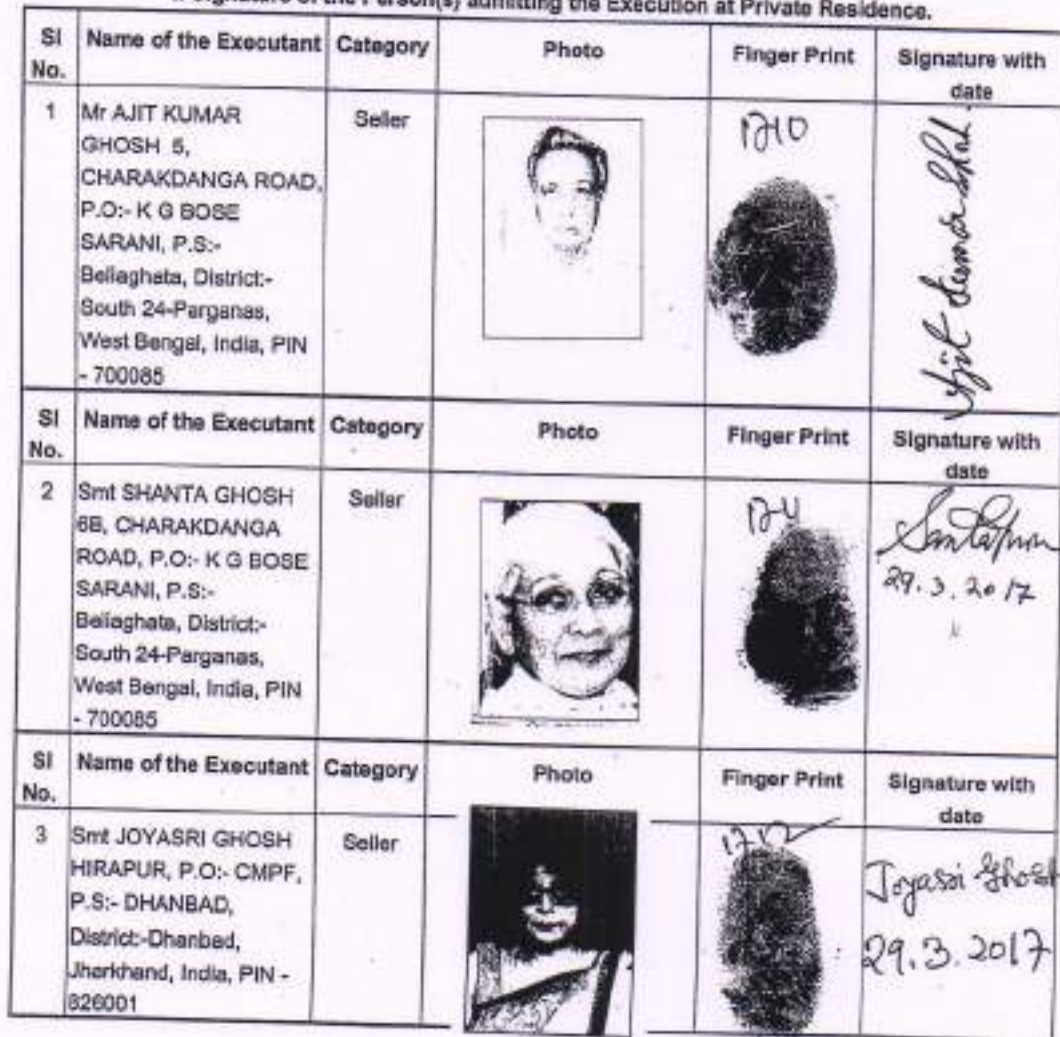 Signature of the Person(s) admitting the Execution at Private Residence.
Sl No. Name of the Executant Category Photo Finger Print Signature with date
1 Mr AJIT KUMAR Seller 1710
GHOSH 5,
CHARAKDANGA ROAD,
P.O:- K G BOSE
SARANI, P.S:-
Beliaghata, District:-
South 24-Parganas,
West Bengal, India, PIN
- 700085
Ajit Kumar Ghosh
Sl No. Name of the Executant Category Photo Finger Print Signature with date
2 Smt SHANTA GHOSH Seller
6B, CHARAKDANGA
ROAD, P.O:- K G BOSE
SARANI, P.S:-
Beliaghata, District:-
South 24-Parganas,
West Bengal, India, PIN
- 700085
29.3.2017
Sl No. Name of the Executant Category Photo Finger Print Signature with date
3 Smt JOYASRI GHOSH Seller 1712
HIRAPUR, P.O:- CMPF,
P.S:- DHANBAD,
District:-Dhanbad,
Jharkhand, India, PIN -
826001
Joyasri Ghosh
29.3.2017